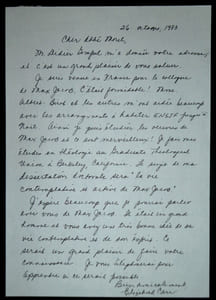 26 octobre, 1973
Cher Abbé Morel,
M. Didier Gompel m'a donné votre adresse
et c'est un grand plaisir de vous saluer.
Je suis venue en France pour le colloque
de Max Jacob. C'était formidable! Mme
Albert- et les autres m'ont aidé beaucoup
avec les arrangements à habiter jusqu'à
Noël. Ainsi je puis étudier les œuvres de
Max Jacob et ce sont merveilleux! Je fais mes
études en théologie au Graduate Theological
Union à Berkeley, California. Le sujet de ma
dissertation doctorale sera "la vie
contemplative et active de Max Jacob."
J'espère beaucoup que je pourrai parler
avec vous de Max Jacob. Il était un grand
homme et vous avez une très bonne idée de sa
vie contemplative et de son esprit. Ce
serait un grand plaisir de faire votre
connaissance. Je vous téléphonerai pour
apprendre si ce serait possible.
Bien amicalement,
Elizabeth Carr